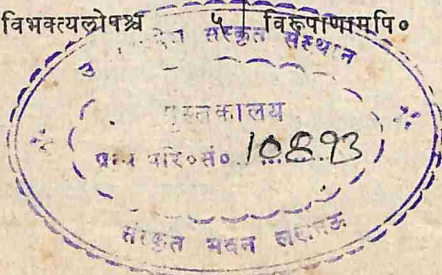 विभक्त्यलोपश्च ५ विरूपाणामपि०
उ प्रदेश संस्कृत संस्थान
पुस्तकालय
ग्रन्थ परि०सं० 10893
संस्कृत भवन लखनऊ